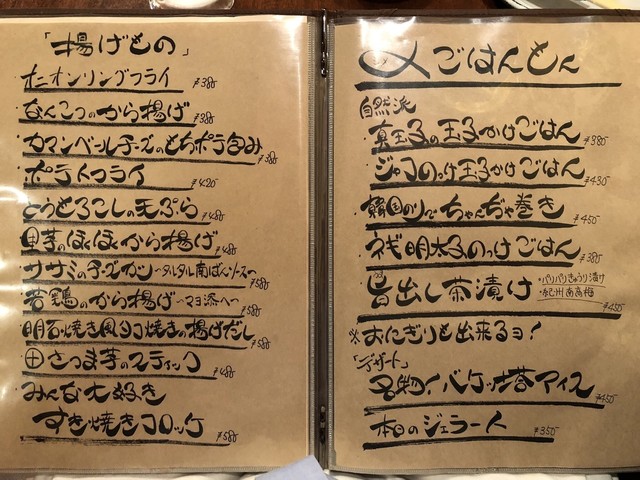 「揚げもの」
・オニオンリングフライ ¥380-
・なんこつのから揚げ ¥380-
・カマンベールチーズのもちポテ包み ¥380-
・ポテトフライ ¥420-
・とうもろこしの天ぷら ¥480-
・里芋のほくほくから揚げ ¥480-
・ササミのチーズカツ〜タルタル南ばんソース〜 ¥580-
・若鶏のから揚げ〜マヨ添へ〜 ¥580-
・明石焼き風タコ焼きの揚げだし ¥580-
・さつま芋のスティック ¥480-
・みんな大好き
すき焼きコロッケ ¥580-
〆ごはんもん
自然派
・真玉子の玉子かけごはん ¥380-
・ジャコのっけ玉子かけごはん ¥430-
・韓国のりでちゃんぢゃ巻き ¥450-
・ネギ明太子のっけごはん ¥380-
・旨出し茶漬け ・パリパリきゅうり漬け ・紀州あま梅 ¥450-
※おにぎりも出来るヨ!
「デザート」
・名物!バケット塔アイス ¥450-
・本日のジェラート ¥350-